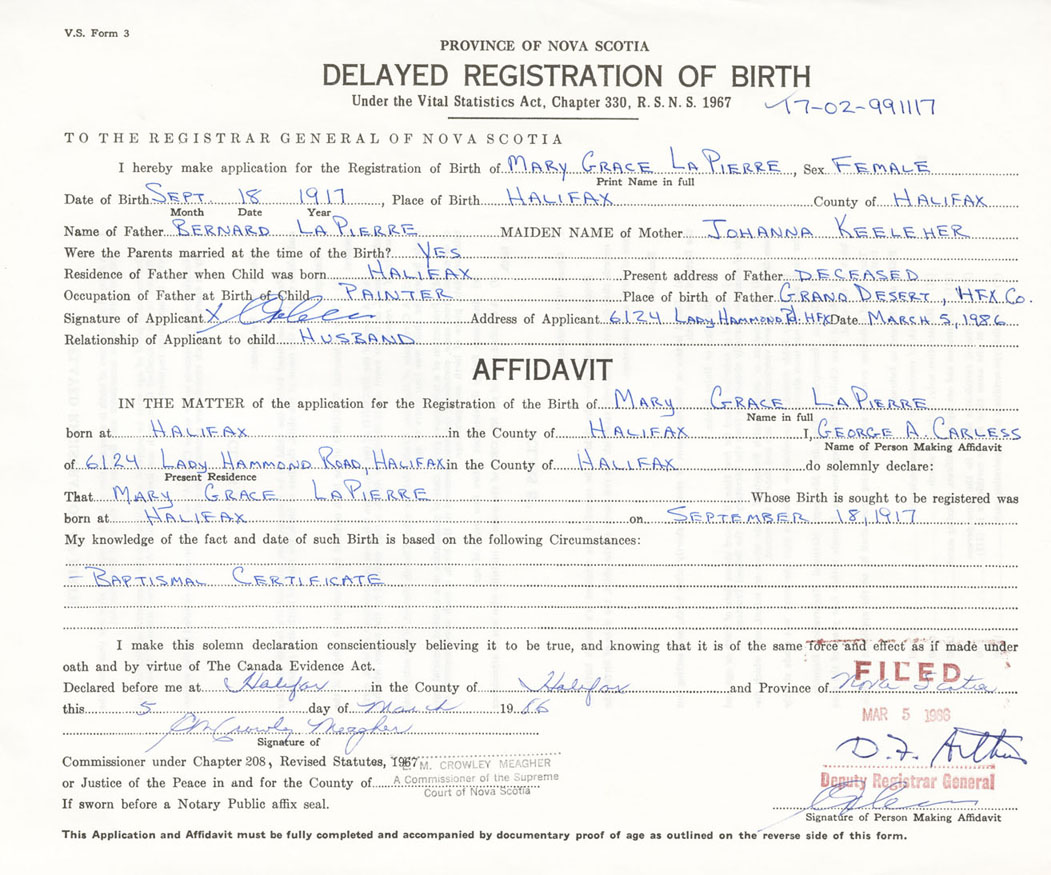 V.S. Form 3
PROVINCE OF NOVA SCOTIA
DELAYED REGISTRATION OF BIRTH
Under the Vital Statistics Act, Chapter 330, R. S. N. S. 1967 17-02-991117
TO THE REGISTRAR GENERAL OF NOVA SCOTIA
I hereby make application for the Registration of Birth of MARY GRACE LAPIERRE, Sex FEMALE
Print Name in full
Date of Birth SEPT 18 1917, Place of Birth HALIFAX County of HALIFAX
Month Date Year
Name of Father BERNARD LAPIERRE MAIDEN NAME of Mother JOHANNA KEELEHER
Were the Parents married at the time of the Birth? YES
Residence of Father when Child was born HALIFAX Present address of Father DECEASED
Occupation of Father at Birth of Child PAINTER Place of birth of Father GRAND DESERT, HFX CO.
Signature of Applicant X Address of Applicant 6124 LADY HAMMOND Rd. HFX Date MARCH 5, 1986
Relationship of Applicant to child HUSBAND
AFFIDAVIT
IN THE MATTER of the application for the Registration of the Birth of MARY GRACE LAPIERRE
Name in full
born at HALIFAX in the County of HALIFAX I, GEORGE A. CARLESS
Name of Person Making Affidavit
of 6124 LADY HAMMOND ROAD, HALIFAX in the County of HALIFAX do solemnly declare:
Present Residence
That MARY GRACE LAPIERRE Whose Birth is sought to be registered was
born at HALIFAX on SEPTEMBER 18, 1917
My knowledge of the fact and date of such Birth is based on the following Circumstances:
- BAPTISMAL CERTIFICATE
I make this solemn declaration conscientiously believing it to be true, and knowing that it is of the same force and effect as if made under
oath and by virtue of The Canada Evidence Act.
FILED
Declared before me at Halifax in the County of Halifax and Province of Nova Scotia
this 5 day of March 1986
MAR 5 1986
CM Crowley Meagher
Signature of
D.F. Arthur
Commissioner under Chapter 208, Revised Statutes, 1967 M. CROWLEY MEAGHER
or Justice of the Peace in and for the County of A Commissioner of the Supreme
Court of Nova Scotia
Deputy Registrar General
If sworn before a Notary Public affix seal.
Signature of Person Making Affidavit
This Application and Affidavit must be fully completed and accompanied by documentary proof of age as outlined on the reverse side of this form.